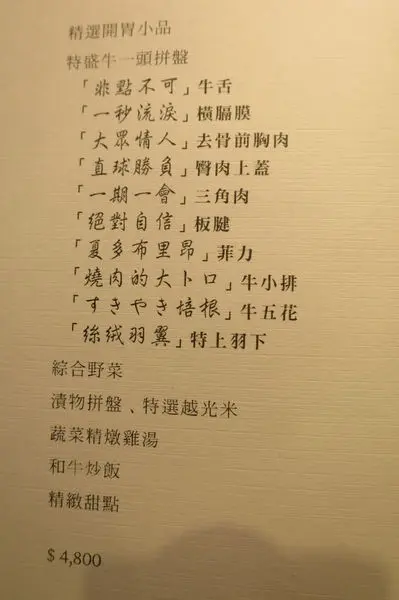 精選開胃小品
特盛牛一頭拼盤
「非點不可」牛舌
「一秒流淚」橫膈膜
「大眾情人」去骨前胸肉
「直球勝負」臀肉上蓋
「一期一會」三角肉
「絕對自信」板腱
「夏多布里昂」菲力
「燒肉的大トロ」牛小排
「すきやき培根」牛五花
「絲絨羽翼」特上羽下
綜合野菜
漬物拼盤、特選越光米
蔬菜精燉雞湯
和牛炒飯
精緻甜點
$4,800